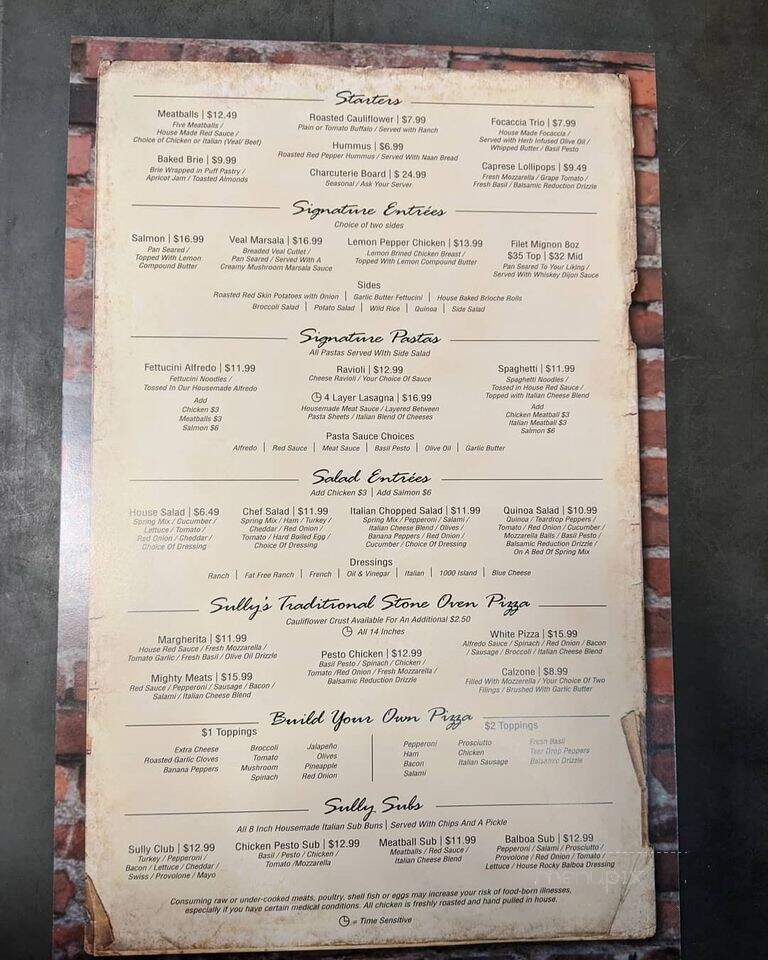 Starters
Meatballs | $12.49
Five Meatballs /
House Made Red Sauce /
Choice of Chicken or Italian (Veal/ Beef)
Baked Brie | $9.99
Brie Wrapped in Puff Pastry /
Apricot Jam / Toasted Almonds
Roasted Cauliflower | $7.99
Plain or Tomato Buffalo / Served with Ranch
Hummus | $6.99
Roasted Red Pepper Hummus / Served With Naan Bread
Charcuterie Board | $ 24.99
Seasonal / Ask Your Server
Focaccia Trio | $7.99
House Made Focaccia /
Served with Herb Infused Olive Oil /
Whipped Butter / Basil Pesto
Caprese Lollipops | $9.49
Fresh Mozzarella / Grape Tomato /
Fresh Basil / Balsamic Reduction Drizzle
Signature Entrées
Choice of two sides
Salmon | $16.99
Pan Seared /
Topped With Lemon
Compound Butter
Veal Marsala | $16.99
Breaded Veal Cutlet /
Pan Seared / Served With A
Creamy Mushroom Marsala Sauce
Lemon Pepper Chicken | $13.99
Lemon Brined Chicken Breast /
Topped With Lemon Compound Butter
Filet Mignon 8oz
$35 Top | $32 Mid
Pan Seared To Your Liking /
Served With Whiskey Dijon Sauce
Sides
Roasted Red Skin Potatoes with Onion | Garlic Butter Fettucini | House Baked Brioche Rolls
Broccoli Salad | Potato Salad | Wild Rice | Quinoa | Side Salad
Signature Pastas
All Pastas Served With Side Salad
Fettucini Alfredo | $11.99
Fettucini Noodles /
Tossed In Our Housemade Alfredo
Add
Chicken $3
Meatballs $3
Salmon $6
Ravioli | $12.99
Cheese Ravioli / Your Choice Of Sauce
4 Layer Lasagna | $16.99
Housemade Meat Sauce / Layered Between
Pasta Sheets / Italian Blend Of Cheeses
Spaghetti | $11.99
Spaghetti Noodles /
Tossed in House Red Sauce /
Topped with Italian Cheese Blend
Add
Chicken Meatball $3
Italian Meatball $3
Salmon $6
Pasta Sauce Choices
Alfredo | Red Sauce | Meat Sauce | Basil Pesto | Olive Oil | Garlic Butter
Salad Entrées
Add Chicken $3 | Add Salmon $6
House Salad | $6.49
Spring Mix / Cucumber /
Lettuce / Tomato /
Red Onion / Cheddar /
Choice Of Dressing
Chef Salad | $11.99
Spring Mix / Ham / Turkey /
Cheddar / Red Onion /
Tomato / Hard Boiled Egg /
Choice Of Dressing
Italian Chopped Salad | $11.99
Spring Mix / Pepperoni / Salami /
Italian Cheese Blend / Olives /
Banana Peppers / Red Onion /
Cucumber / Choice Of Dressing
Quinoa Salad | $10.99
Quinoa / Teardrop Peppers /
Tomato / Red Onion / Cucumber /
Mozzarella Balls / Basil Pesto /
Balsamic Reduction Drizzle /
On A Bed Of Spring Mix
Dressings
Ranch | Fat Free Ranch | French | Oil & Vinegar | Italian | 1000 Island | Blue Cheese
Sully's Traditional Stone Oven Pizza
Cauliflower Crust Available For An Additional $2.50
All 14 Inches
Margherita | $11.99
House Red Sauce / Fresh Mozzarella /
Tomato Garlic / Fresh Basil / Olive Oil Drizzle
Mighty Meats | $15.99
Red Sauce / Pepperoni / Sausage / Bacon /
Salami / Italian Cheese Blend
Pesto Chicken | $12.99
Basil Pesto / Spinach / Chicken /
Tomato /Red Onion / Fresh Mozzarella /
Balsamic Reduction Drizzle
White Pizza | $15.99
Alfredo Sauce / Spinach / Red Onion / Bacon
/ Sausage / Broccoli / Italian Cheese Blend
Calzone | $8.99
Filled With Mozzerella / Your Choice Of Two
Filings / Brushed With Garlic Butter
Build Your Own Pizza
$1 Toppings
Extra Cheese
Roasted Garlic Cloves
Banana Peppers
Broccoli
Tomato
Mushroom
Spinach
Jalapeño
Olives
Pineapple
Red Onion
$2 Toppings
Pepperoni
Ham
Bacon
Salami
Prosciutto
Chicken
Italian Sausage
Fresh Basil
Tear Drop Peppers
Balsamic Drizzle
Sully Subs
All 8 Inch Housemade Italian Sub Buns | Served With Chips And A Pickle
Sully Club | $12.99
Turkey / Pepperoni /
Bacon / Lettuce / Cheddar /
Swiss / Provolone / Mayo
Chicken Pesto Sub | $12.99
Basil / Pesto / Chicken /
Tomato /Mozzarella
Meatball Sub | $11.99
Meatballs / Red Sauce /
Italian Cheese Blend
Balboa Sub | $12.99
Pepperoni / Salami / Prosciutto /
Provolone / Red Onion / Tomato /
Lettuce / House Rocky Balboa Dressing
Consuming raw or under-cooked meats, poultry, shell fish or eggs may increase your risk of food-born illnesses,
especially if you have certain medical conditions. All chicken is freshly roasted and hand pulled in house.
= Time Sensitive